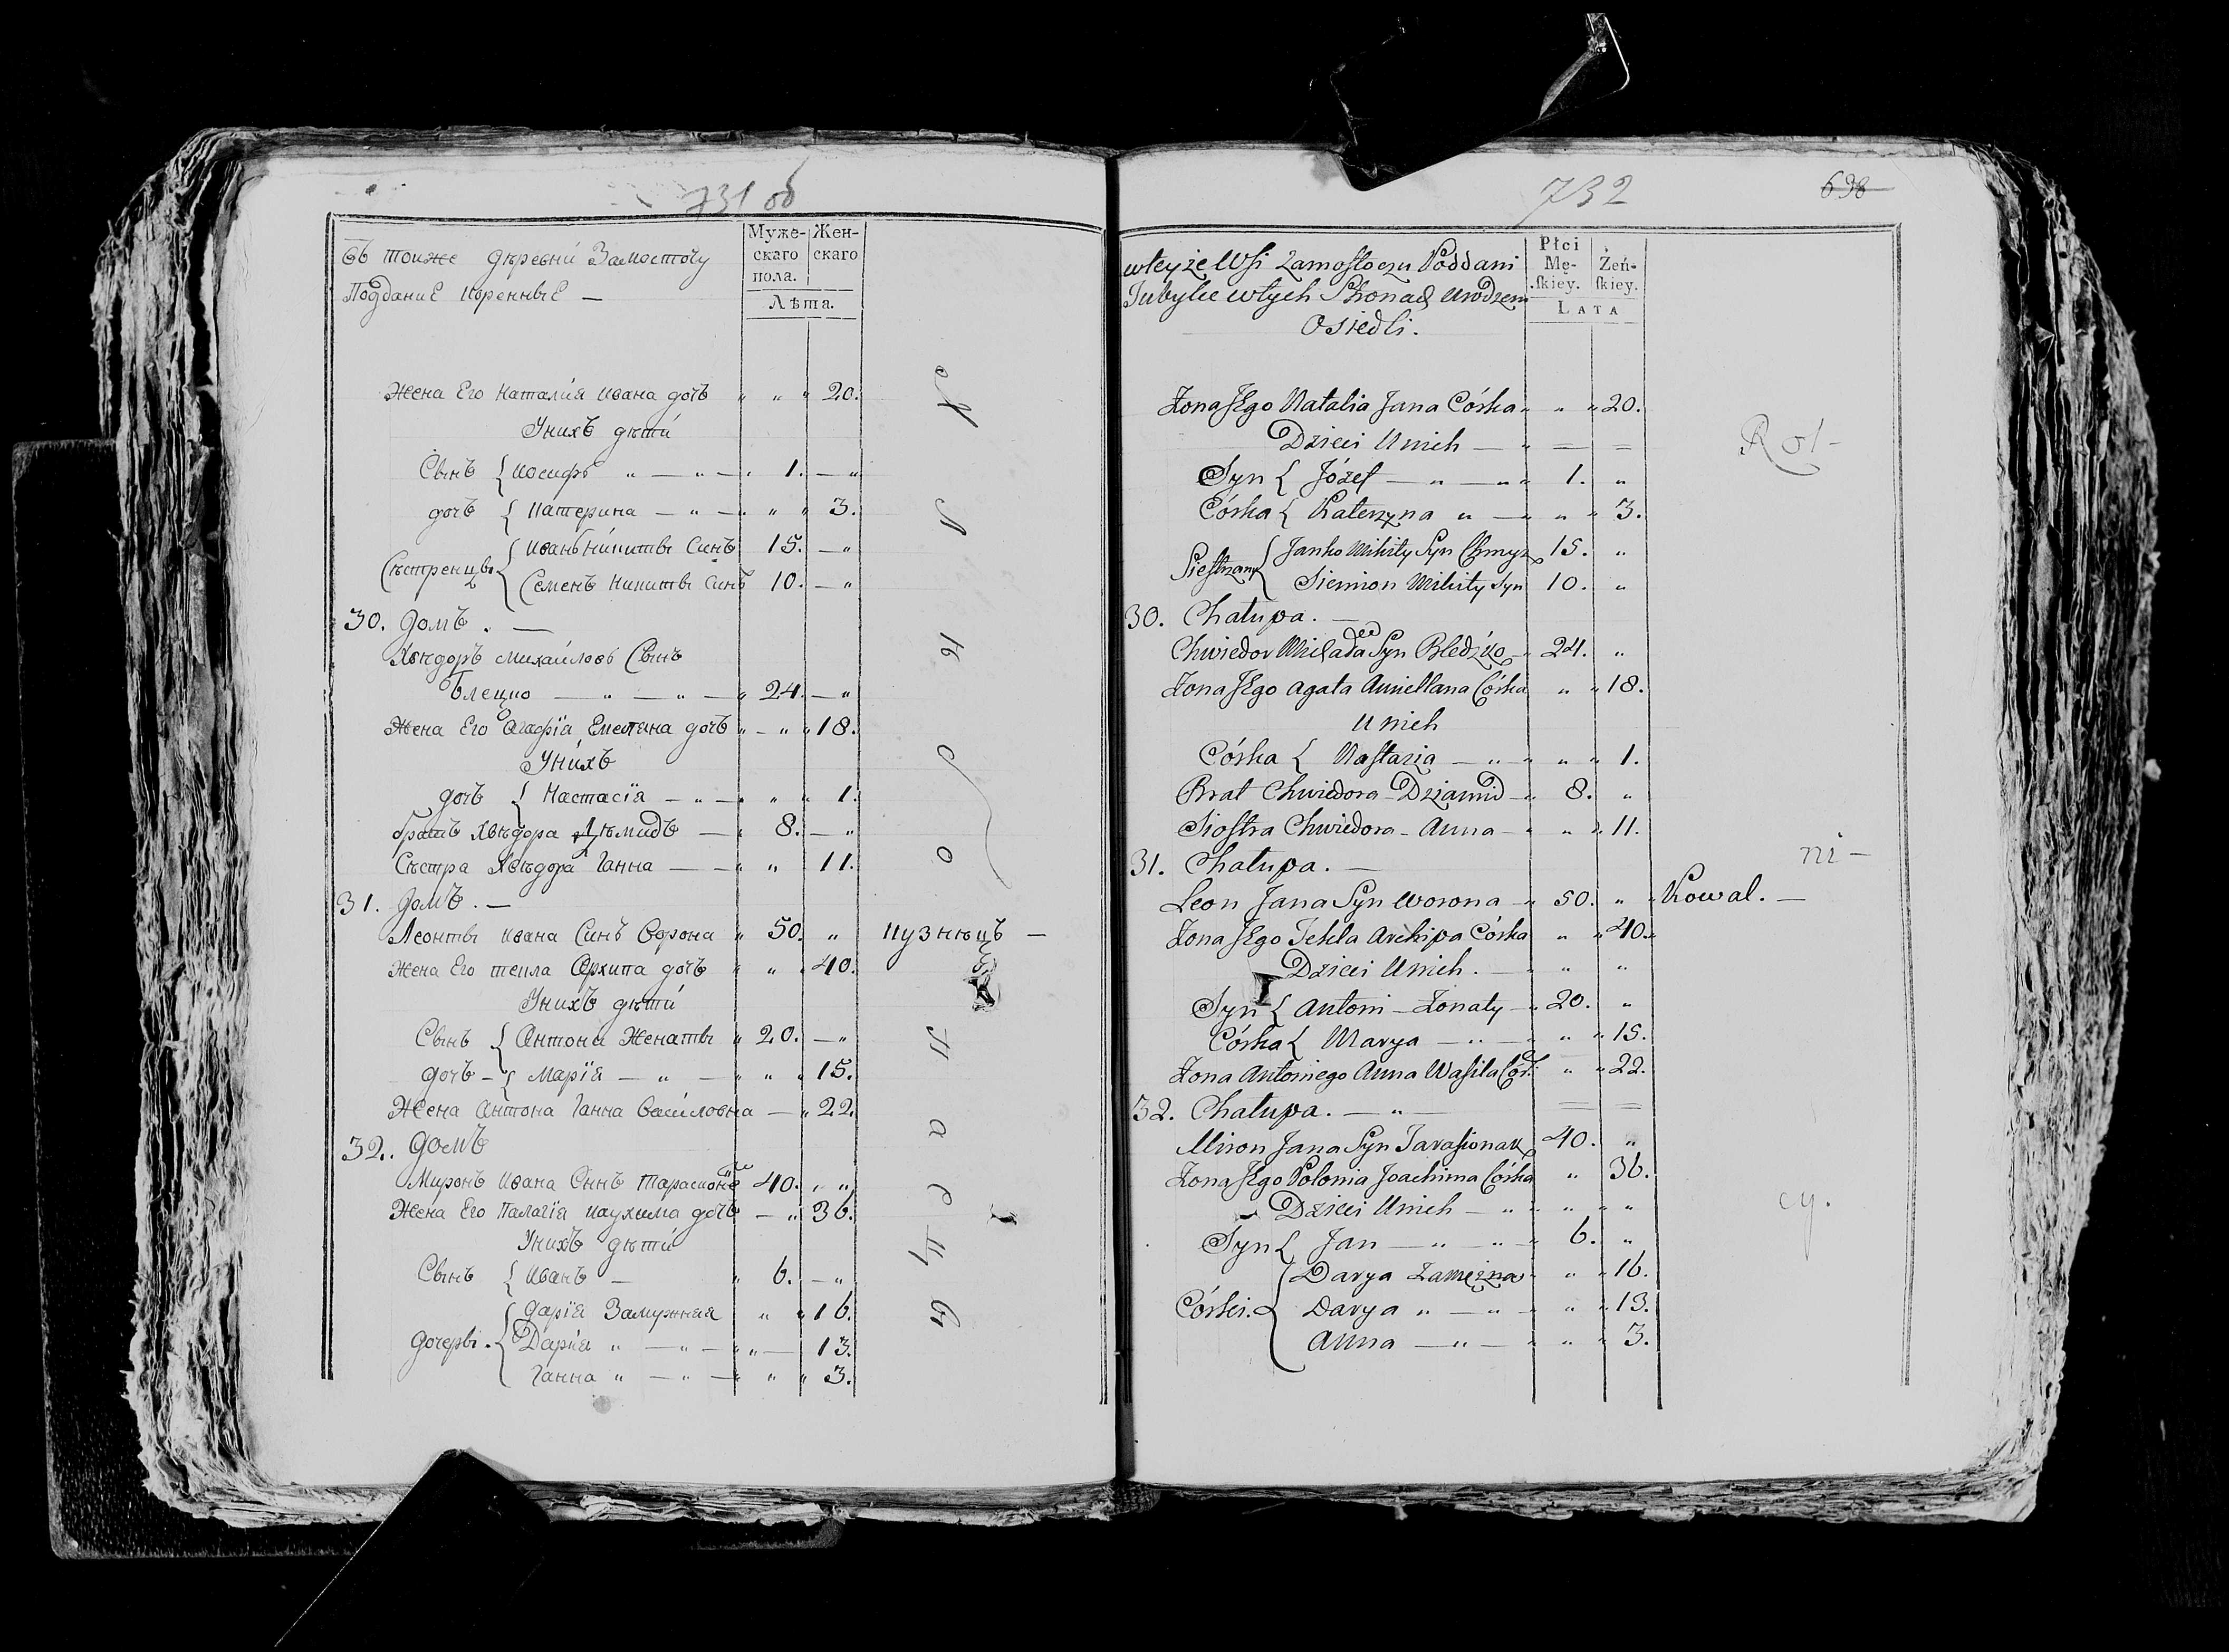 731 об
Въ тоиже дѣревни Замосточу
Поддание коренные —
Муже-
скаго
пола.
Жен-
скаго
Лѣта.
Жена Его Наталия Ивана дочь " " " 20.
Унихъ дѣти
Сынъ { Иосифъ " — " — " 1. — "
дочь { Катерина — " — " " 3.
Сѣстренцы { Иванъ Никиты Синъ 15. — "
Семенъ Никиты Синъ 10. — "
30. Домъ. —
Хвѣдоръ Михайловъ Сынъ
Блецко — " — " — " 24. — "
Жена Его Агафїя Емеляна дочь " — " " 18.
Унихъ
дочь { Настасїя — " — " " 1.
братъ Хвѣдора Дѣмидъ — " 8. — "
Сѣстра Хвѣдора Ганна — — " " 11.
31. Домъ. —
Леонты Ивана Синъ Ворона " 50. " кузнѣцъ —
Жена Его текла Архипа дочь " " " 40.
Унихъ дѣти
Сынъ { Антони Женаты " 20. — "
дочь — { Марїя — " — " " 15.
Жена Антона Ганна Василовна — " 22.
32. Домъ
Миронъ Ивана Синъ Тарасионокъ 40. " "
Жена Его Палагїя Иаухима дочь — " 36.
Унихъ дѣти
Сынъ { Иванъ — " 6. — "
дочеры. { Дарїя Замужняя " " 16.
Дарїя " — " — " " — 13.
Ганна " — " — " " " 3.
732
698
wteyże Wsi Zamostoczu Poddani
Tubylce wtych Stronach Urodzeni
Osiedli.
Płci
Mę-
skiey.
Żeń-
skiey.
LATA
Żona Jego Natalia Jana Córka " " " 20.
Dzieci Unich — " = =
Rol-
Syn { Józef — " — " " 1. "
Córka { Katerzyna " — " " " 3.
Siestrzany { Janko Mikity Syn Chmyz 15. "
Siemion Mikity Syn 10. "
30. Chałupa. —
Chwiedor Michała Syn Bledzko — 24. "
Żona Jego Agata Amiellana Córka " " 18.
Unich
Córka { Nastazia — " " " " 1.
Brat Chwiedora Dziamid — " 8. "
Siostra Chwiedora — Anna — " " " 11.
ni —
31. Chałupa. —
Leon Jana Syn Worona — " 50. " " Kowal. —
Żona Jego Tekla Archipa Córka " " 40. "
Dzieci Unich. — " " "
Syn { Antoni — Żonaty — " 20. "
Córka { Marya — " — " " 15.
Żona Antoniego Anna Wasila Cór: " " 22.
32. Chałupa. — " — = =
Miron Jana Syn Tarasionak 40. "
Żona Jego Polonia Joachima Córka " 36.
cy.
Dzieci Unich — " " " "
Syn { Jan — " — " " 6. "
Córki. { Darya Zamężna " " " 16.
Darya " — " — " " " 13.
Anna — " — " " " 3.